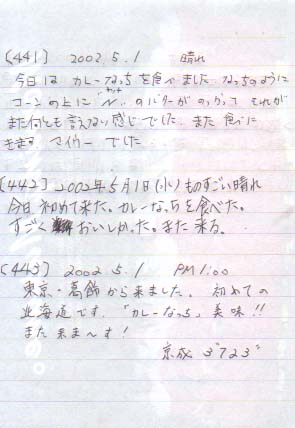 [441] 2002.5.1 晴れ
今日は カレーなっちを食べました なっちのように
コーンの上に のバターがのっかって それが
また何とも言えない感じでした。また 食べに
きます マイウー でした
[442] 2002年5月1日(水)ものすごい晴れ
今日初めて来た。カレーなっちを食べた。
すごく おいしかった。また来る。
[443] 2002 5.1 PM1:00
東京・葛飾から来ました。初めての
北海道です。「カレーなっち」美味!!
また来ま〜す!
京成 3"723"